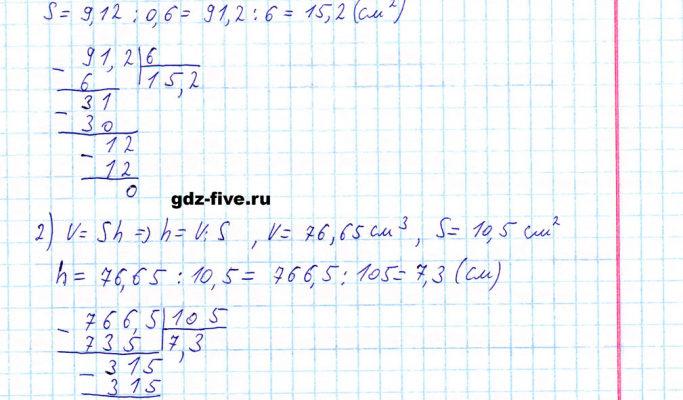 S = 9,12 : 0,6 = 91,2 : 6 = 15,2 (см²)
91,2 | 6
- 6 | 15,2
31
- 30
12
- 12
0
gdz-five.ru
2) V = Sh => h = V:S , V = 76,65 см³ , S = 10,5 см²
h = 76,65 : 10,5 = 766,5 : 105 = 7,3 (см)
766,5 | 105
- 735 | 7,3
315
- 315